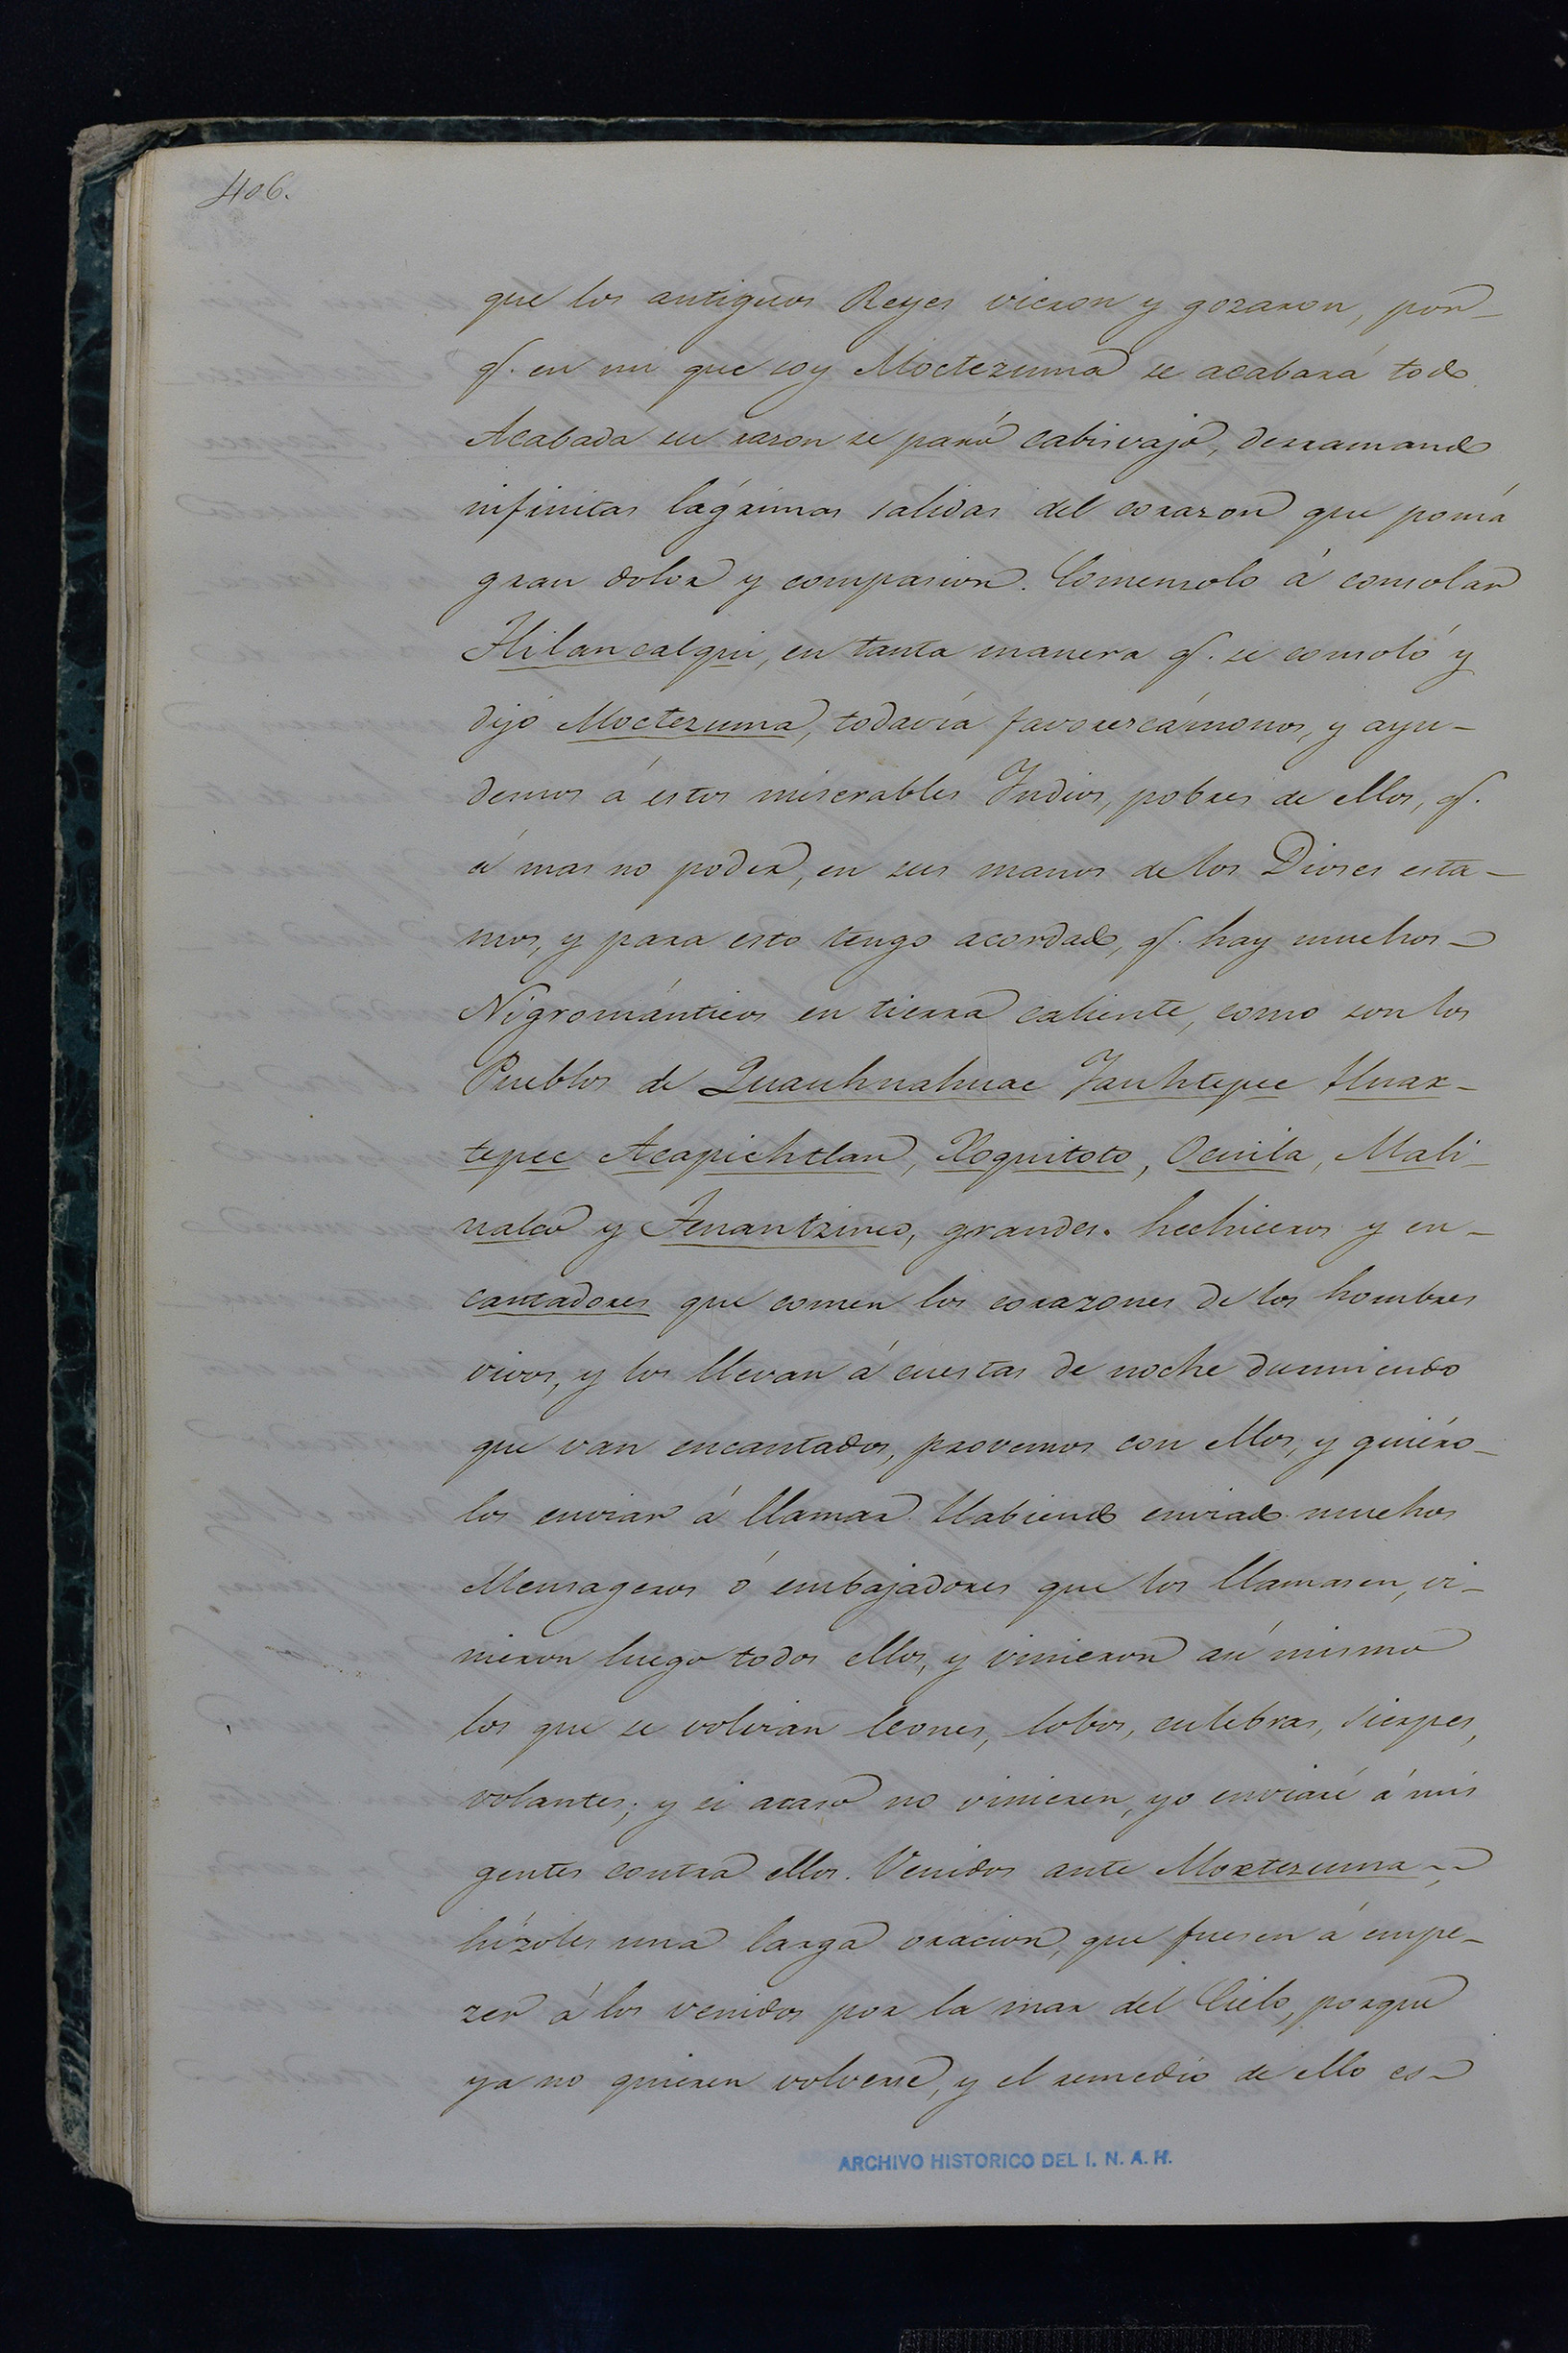 406.
que los antiguos Reyes vieron y gozaron, por-
q.e en mi que soy Moctezuma se acabará todo.
Acabada su razon se paró cabisvajo, derramando
infinitas lágrimas salidas del corazon que ponia
gran dolor y compasion. Comenzolo á consolar
Hilancalqui, en tanta manera q.e se consoló y
dijo Moctezuma, todavía favorescámonos, y ayu-
demos á estos miserables Indios, pobres de ellos, q.e
á mas no poder, en sus manos de los Dioses esta-
mos, y para esto tengo acordado, q.e hay muchos
Nigrománticos en tierra caliente, como son los
Pueblos de Quauhnahuac Yauhtepec Huax-
tepec Acapichtlan, Xoquitoto, Ocuila, Mali-
nalco y Tenantzinco, grandes hechiceros y en-
cantadores que comen los corazones de los hombres
vivos, y los llevan á cuestas de noche durmiendo
que van encantados, provemos con ellos, y quiéro-
los enviar á llamar. Habiendo enviado muchos
Mensageros ó embajadores que los llamasen, vi-
nieron luego todos ellos, y vinieron asi mismo
los que se volvian leones, lobos, culebras, sierpes,
volantes; y si acaso no vinieren, yo enviaré á mis
gentes contra ellos. Venidos ante Moxtezuma
hízoles una larga oracion, que fuesen á empe-
zer á los venidos por la mar del Cielo, porque
ya no quieren volverse, y el remedio de ello es
ARCHIVO HISTORICO DEL I. N. A. H.